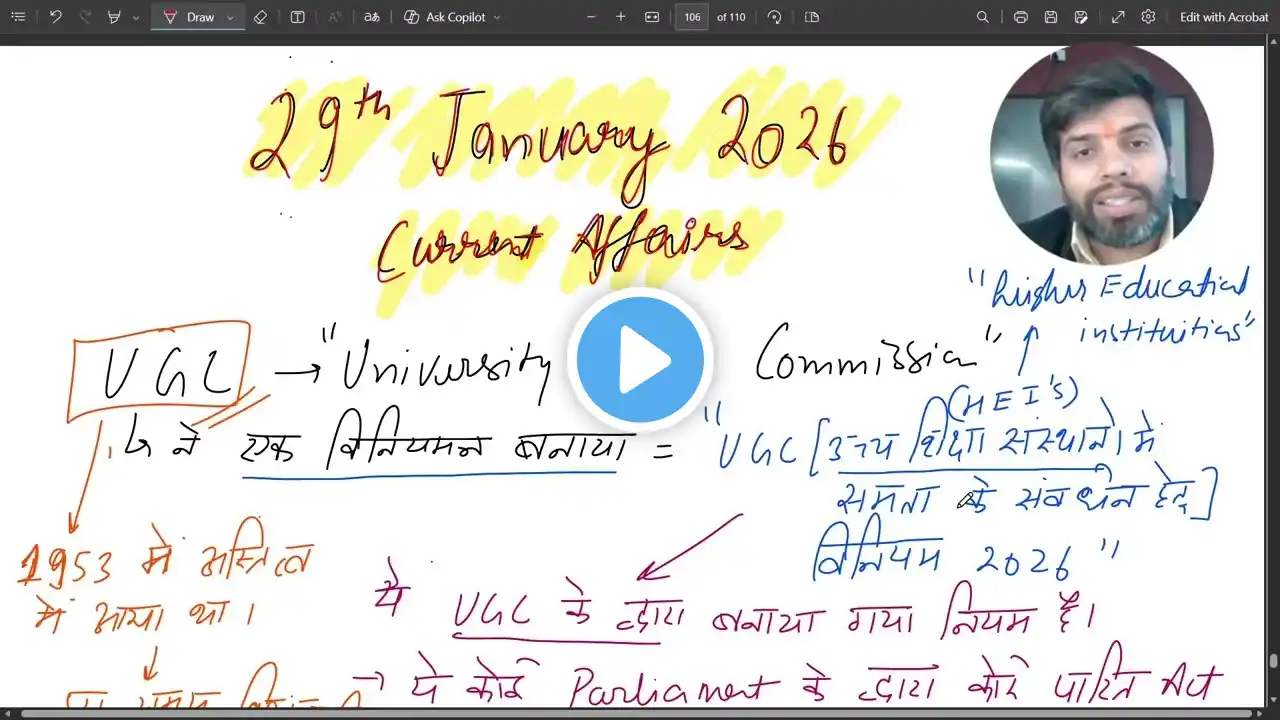 Draw
Ask Copilot
106 of 110
Edit with Acrobat
29th January 2026
Current Affairs
"higher Educational
instituitions"
UGC → "University Commission"
(HEI's)
ने एक विनियमन बनाया = "UGC [उच्य शिक्षा संस्थानो में
समता के संवर्धन हेतु]
विनियम 2026"
1953 में अस्तित्व
में आया था।
ये UGC के द्वारा बनाया गया नियम है।
→ ये कोई Parliament के द्वारा कोई पारित Act